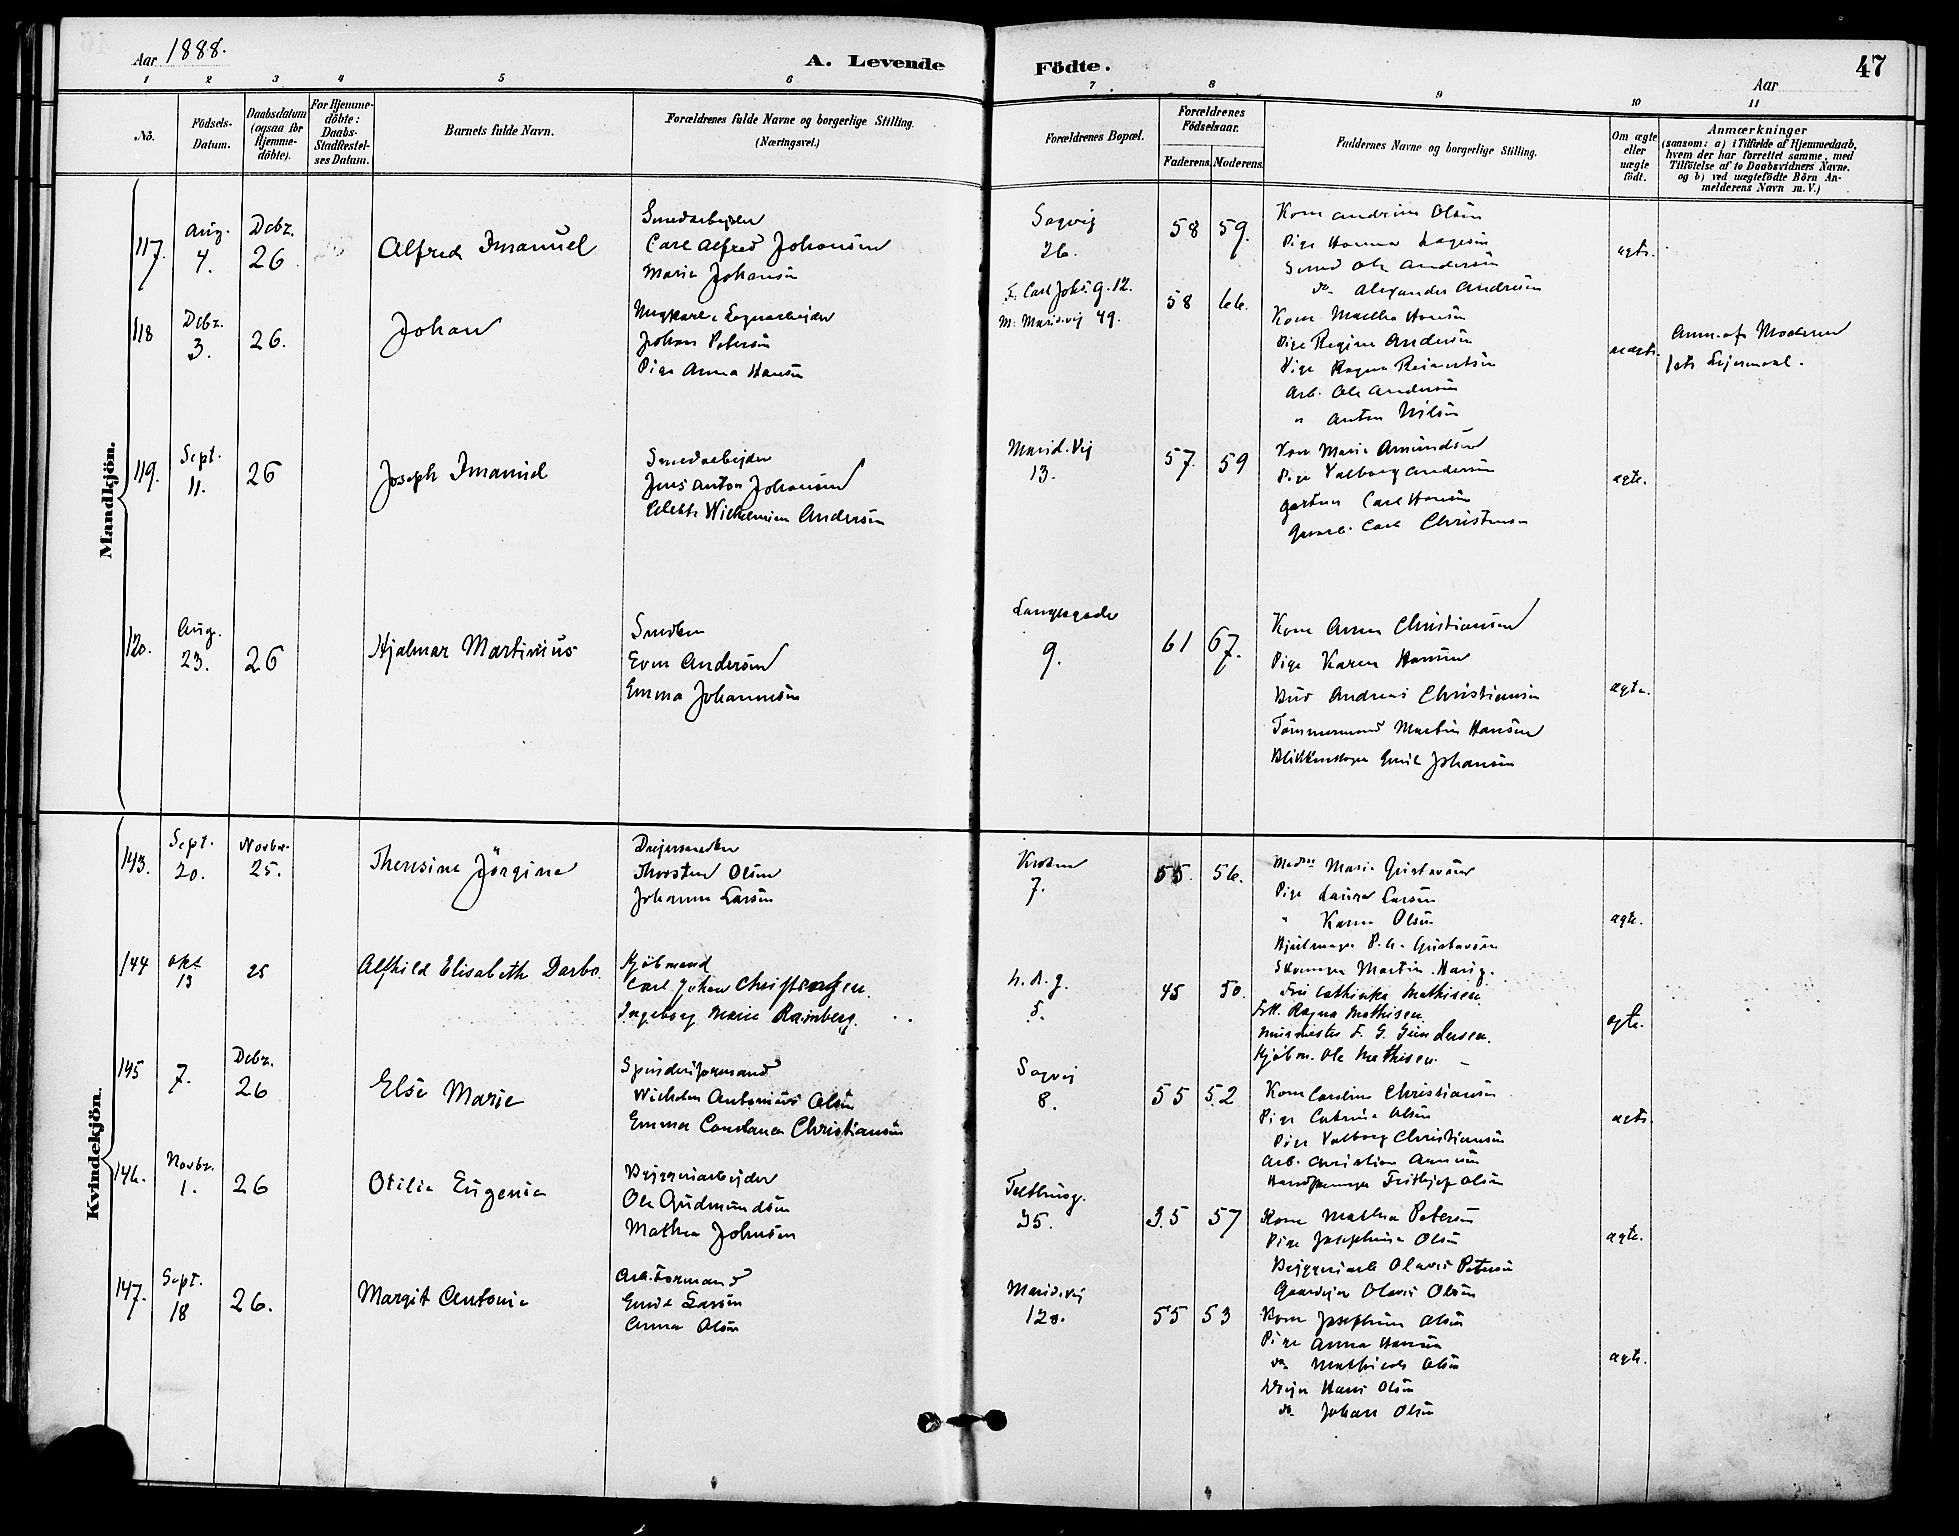 Aar 1888.
A. Levende Födte.
Aar
47
1 2 3 4 5 6 7 8 9 10 11
No.
Födsels-Datum.
Daabsdatum (ogsaa for Hjemme-döbte).
For Hjemme-döbte: Daabs-Stadfæstel-ses Datum.
Barnets fulde Navn.
Forældrenes fulde Navne og borgerlige Stilling.
(Næringsvei.)
Forældrenes Bopæl.
Forældrenes Födselsaar.
Faderens. Moderens.
Faddernes Navne og borgerlige Stilling.
Om ægte eller uægte födt.
Anmærkninger
(saasom: a) i Tilfælde af Hjemmedaab, hvem der har forrettet samme, med Tilföielse af to Daabsvidners Navne, og b) ved uægtefödte Börn Anmelderens Navn m. V.)
Mandkjön.
117. Aug. 4. Dcbr. 26 Alfred Imanuel
Smedarbejder
Carl Alfred Johansen
Marie Johansen
Sagvej
26.
58 59.
Kone Andrine Olsen
Pige Hanna
Smed Ole Andersen
do Alexander Andresen
ægte.
118 Dcbr. 3. 26. Johan
Ungkarl
Johan Petersen
Pige Anna Hansen
F: Carl Johs. g. 12.
M: Maridsvej 49.
58 66.
Kone Martha Hansen
Pige Regine Andersen
Pige Ragna Reinertsen
Arb. Ole Andersen
" Anton Nilsen
uægte.
Anm. af Moderen
1ste Lejermaal.
119. Sept. 11. 26 Joseph Imanuel
Smedarbejder
Jens Anton Johansen
Wilhelmine Andersen
Marid. Vej
13.
57. 59
Kone Marie Amundsen
Pige Valborg Andersen
Gartner Carl Hansen
Carl Christensen
ægte.
120. Aug. 23. 26 Hjalmar Martinius
Smedsv
Even Andersen
Emma Johannesen
Langesgade
9.
61 67.
Kone Anna Christiansen
Pige Karen Hansen
Bud Andreas Christiansen
Tömmermand Martin Hansen
Blikkenslager Emil Johansen
ægte.
Kvindekjön.
143. Sept. 20. Novbr. 25. Theresine Jörgine
Thorsten Olsen
Johanne Larsen
Krohn
7.
55. 56.
Mad. Marie Gustavsen
Pige Laura Larsen
" Karen Olsen
Hjulmager P. A. Gustavsen
Skomager Martin
ægte.
144 Okt 13 25 Alfhild Elisabeth Darbo.
Kjöbmand
Carl Johan Christensen.
Ingeborg Marie Ramberg.
5.
45 50.
Fru Cathinka Mathisen
Frk. Ragna Mathisen.
Murmester F. G. Gundersen.
Kjöbm. Ole Mathisen.
ægte.
145 7. Dcbr. 26 Else Marie
Spinderiformand
Wilhelm Antonius Olsen
Emma Constance Christiansen
Sagvej
8.
55 52
Kone Caroline Christiansen
Pige Cathrine Olsen
Pige Valborg Christiansen
Arb. Christian
Frithjof Olsen
ægte.
146. Novbr. 1. 26 Otilie Eugenie
Bryggeriarbejder
Ole Gudmundsen
Mathea Johnsen
Telthusg.
35.
35 57
Kone Mathea Petersen
Pige Josephine Olsen
Bryggeriarb Olavis Petersen
Olavis Olsen
ægte.
147. Sept. 18 26. Margit Antonie
Arb. formand
Emil Larsen
Anna Olsen
Maridsvej
120.
55 53
Kone Josephine Olsen
Pige Anna Hansen
do Mathilde Olsen
Drejer Hans Olsen
do Johan Olsen
ægte.